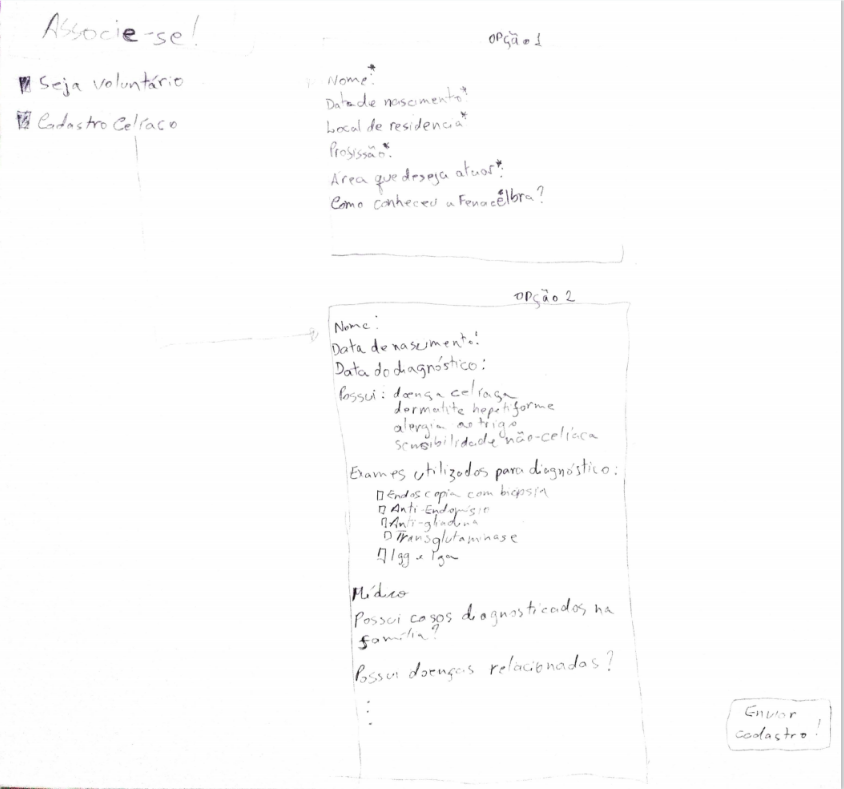 Associe-se!
Seja voluntário
Cadastro Celíaco
OPÇão 1
Nome*:
Data de nascimento*:
Local de residencia*
Profissão*:
Área que deseja atuar*:
Como conheceu a Fenacelbra?
OPÇão 2
Nome:
Data de nascimento:
Data do diagnóstico:
Possui: doença celíaca
dermatite hepetiforme
alergia ao trigo
sensibilidade não-celíaca
Exames utilizados para diagnóstico:
Endoscopia com biópsia
Anti-Endomísio
Anti-gliadina
Transglutaminase
Igg e Iga
Médico
Possui casos diagnosticados na
família?
Possui doenças relacionadas?
Enviar
cadastro!